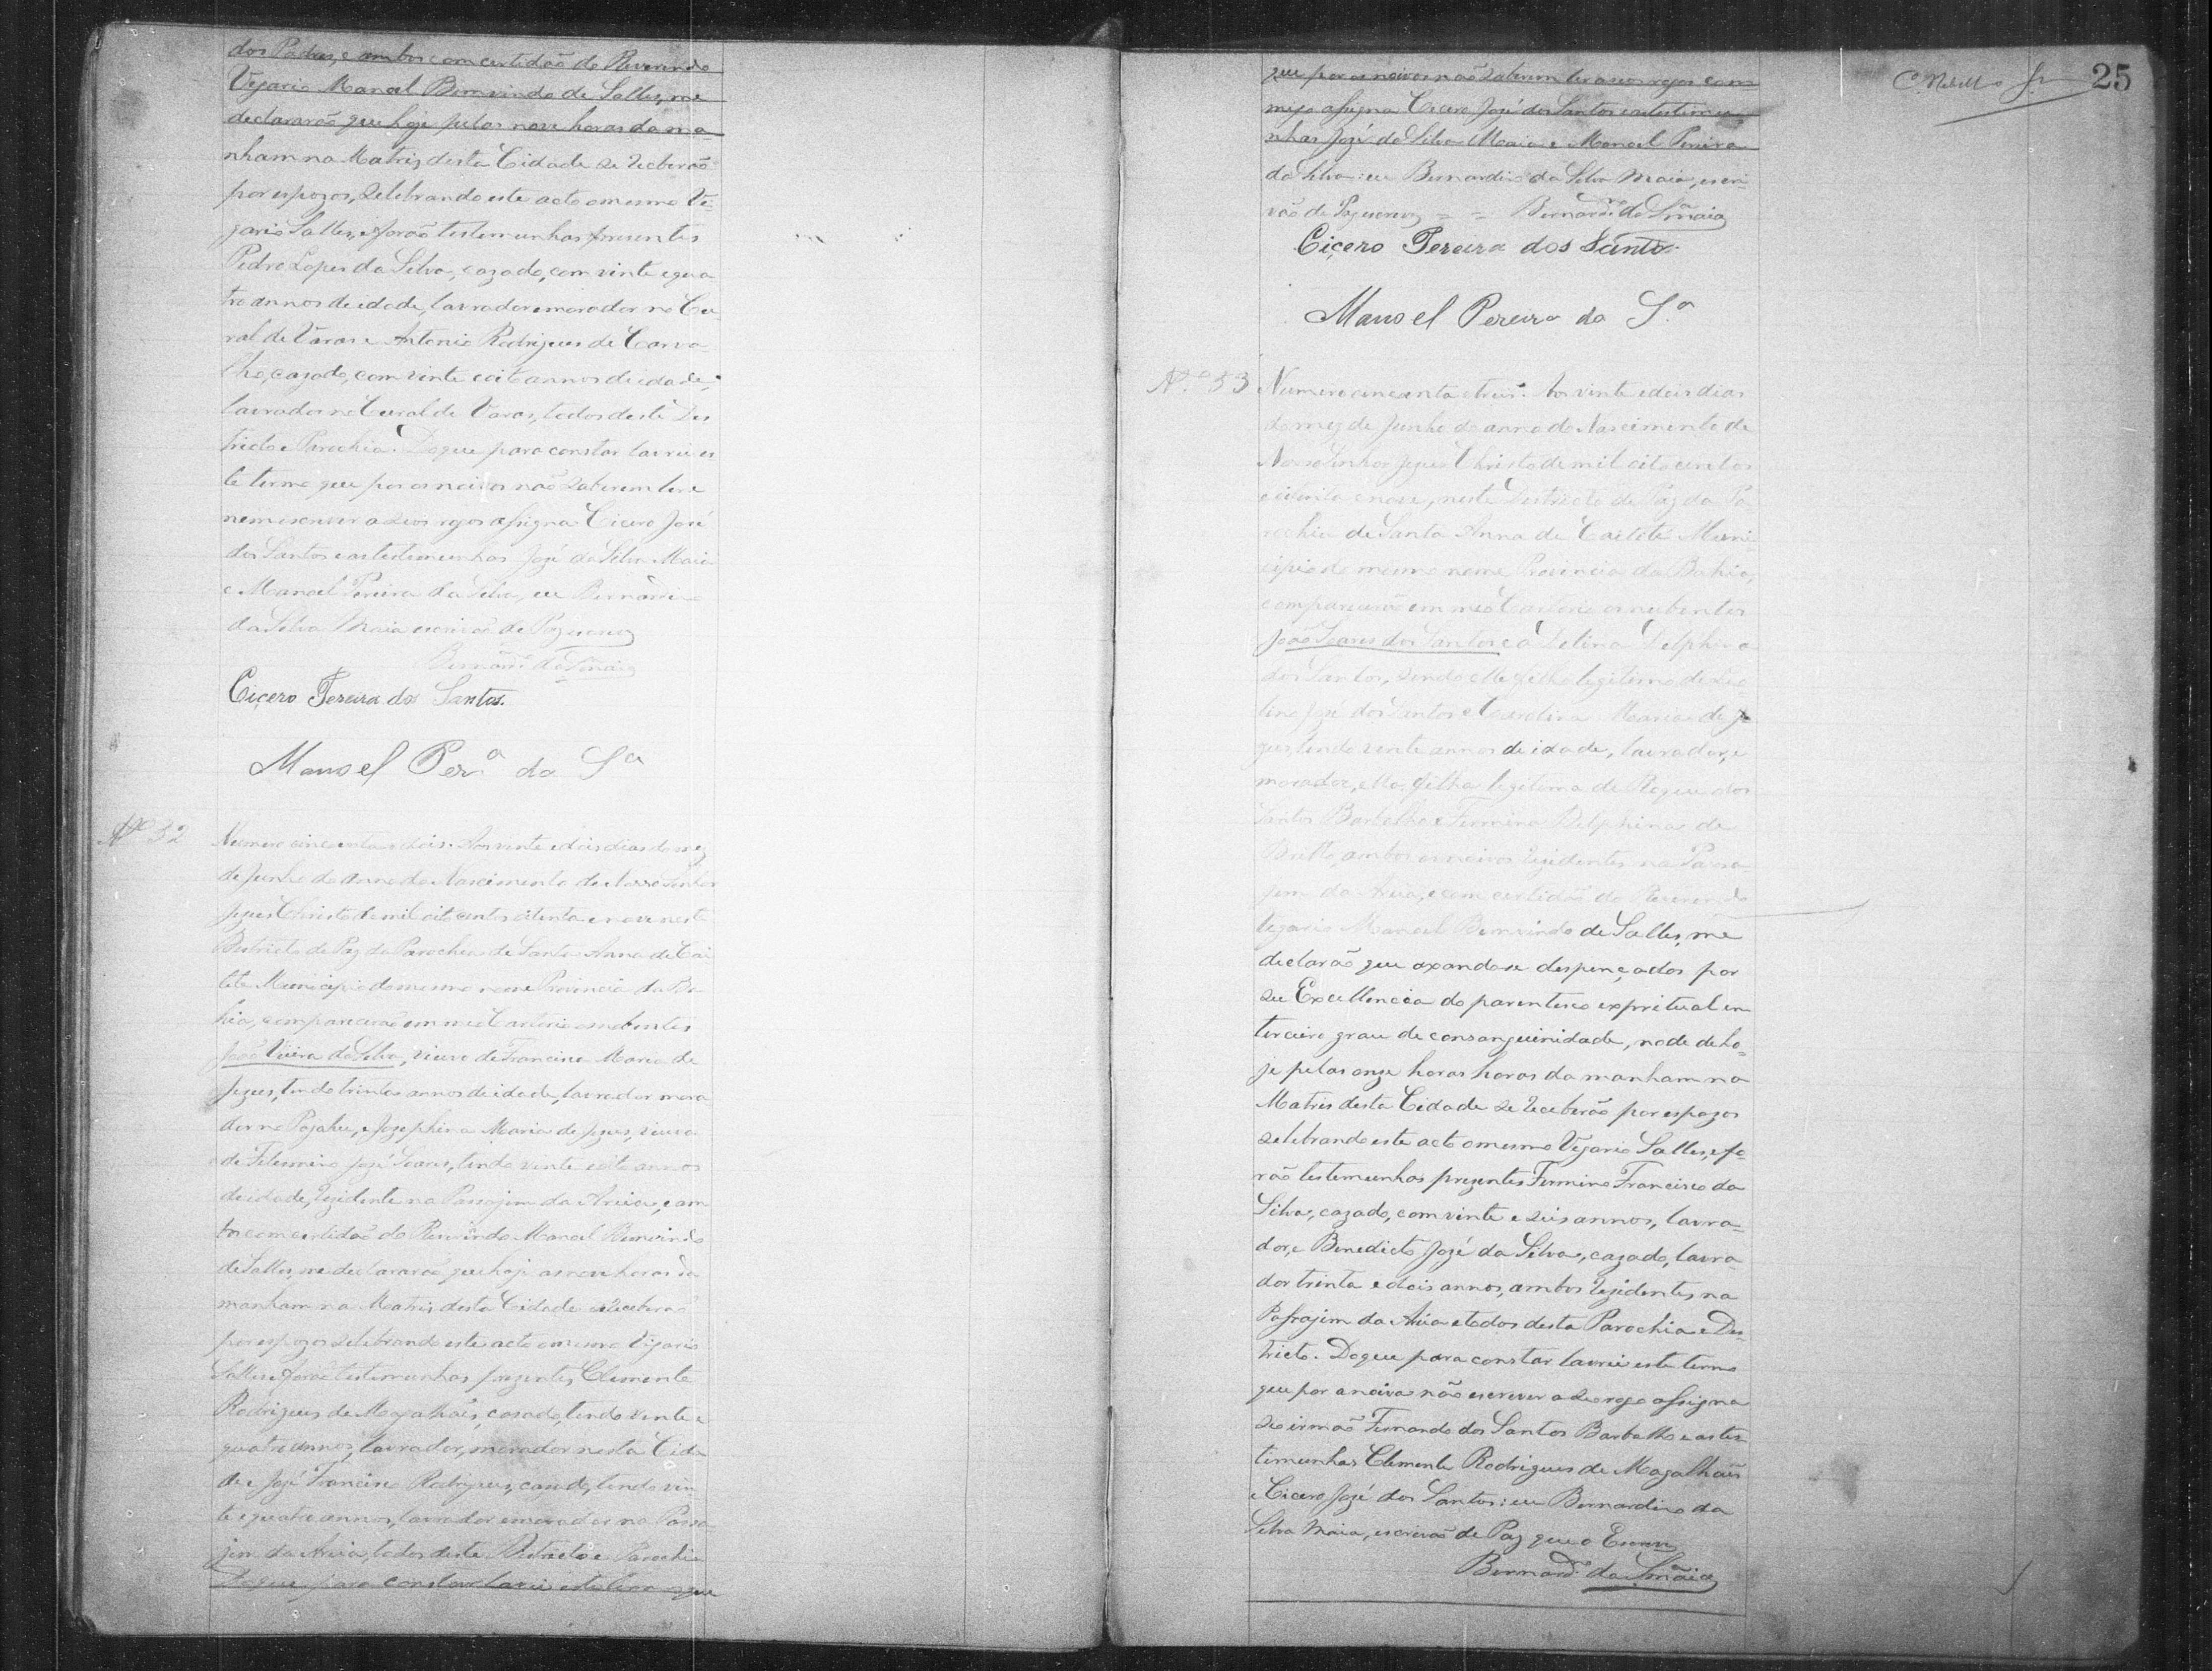 dos Padres, e ambos com certidão do Reverendo
Vigario Manoel Bemvindo de Salles, me
declararão que hoje pelas nove horas da ma-
nham na Matris desta Cidade se receberão
por espozos, selebrando este acto o mesmo Vi-
gario Salles, e forão testemunhas prezentes
Pedro Lopes da Silva, cazado, com vinte e qua
tro annos de idade, lavrador e morador no Cur
ral de Varas e Antonio Rodrigues de Carva-
lho, cazado, com vinte e oito annos de idade,
lavrador no Curral de Varas, todos deste Des
tricto e Parochia. Do que para constar lavrei es
te termo que por os noivos não saberem ler e
nem escrever a seos rogos assigna Cicero José
dos Santos e as testemunhas José da Silva Maia
e Manoel Pereira da Silva, eu Bernardino
da Silva Maia escrivão de Paz escrevy
Bernardº da Sª Maia
Cicero Pereira dos Santos.
Manoel Perª da Sª
Nº 52
Numero cincoenta e dois. Aos vinte e dois dias do mez
de Junho do anno do Nascimento de Nosso Senhor
Jezus Christo de mil oito centos oitenta e nove neste
Destricto de Paz da Parochia de Santa Anna de Cai
tete Municipio do mesmo nome Provincia da Ba-
hia, comparecerão em meo Cartorio os nubentes
João Vieira da Silva, viuvo de Francisca Maria de
Jezus, tendo trinta annos de idade, lavrador mora
dor no Pajahu, e Jozephina Maria de Jezus, viuva
de José Soares, tendo vinte e oito annos
de idade, rezidente na Passajem da Areia, e am
bos com certidão do Reverendo Manoel Bemvindo
de Salles, me declararão que hoje as nove horas da
manham na Matris desta Cidade se receberão
por espozos selebrando este acto o mesmo Vigario
Salles e forão testemunhas prezentes, Clemente
Rodrigues de Magalhães, casado, tendo vinte e
quatro annos, lavrador, morador nesta Cida
de e José Francisco Rodrigues, casado, tendo vin
te e quatro annos, lavrador e morador na Passa
jem da Areia, todos deste Destricto e Parochia
Do que para constar lavrei este termo que
25
que por os noivos não saberem ler a seos rogos com
migo assigna Cicero José dos Santos e as testemu-
nhas José da Silva Maia e Manoel Pereira
da Silva: eu Bernardino da Silva Maia, escri-
vão de Paz escrevy = = Bernardº da Sª Maia
Cicero Pereira dos Santos.
Manoel Pereira da Sª
Nº 53
Numero cincoenta e treis. Aos vinte e dois dias
do mez de Junho do anno do Nascimento de
Nosso Senhor Jezus Christo de mil oito centos
e oitenta e nove, neste Destricto de Paz da Pa
rochia de Santa Anna de Caitete Muni
cipio do mesmo nome Provincia da Bahia,
comparecerão em meo Cartorio os nubentes
João Soares dos Santos e a Delphina
dos Santos, sendo elle filho legitimo de
José dos Santos e Carolina Maria de Je
zus, tendo vinte annos de idade, lavrador, e
morador, ella, filha legitima de Roque dos
Santos Barbalho e Firmina Delphina de
Britto, ambos os noivos rezidentes na Passa
jem da Areia, e com certidão do Reverendo
Vigario Manoel Bemvindo de Salles, me
declarão que axandose despençados por
sue Excellencia do parentesco expritual em
terceiro grau de consanguinidade, no de ho-
je pelas onze horas horas da manham na
Matris desta Cidade se receberão por espozos
selebrando este acto o mesmo Vigario Salles, e fo-
rão testemunhas prezentes Firmino Francisco da
Silva, cazado, com vinte e seis annos, lavra-
dor, e Benedicto José da Silva, cazado, lavra-
dor trinta e dois annos, ambos rezidentes na
Passajim da Areia e todos desta Parochia e Des-
tricto. Do que para constar lavrei este termo
que por a noiva não escrever a seo rogo assigna
seo irmão Fernando dos Santos Barbalho e as tes-
timunhas Clemente Rodrigues de Magalhães
e Cicero José dos Santos: eu Bernardino da
Silva Maia, escrivão de Paz que o Escrevy
Bernardº da Sª Maia